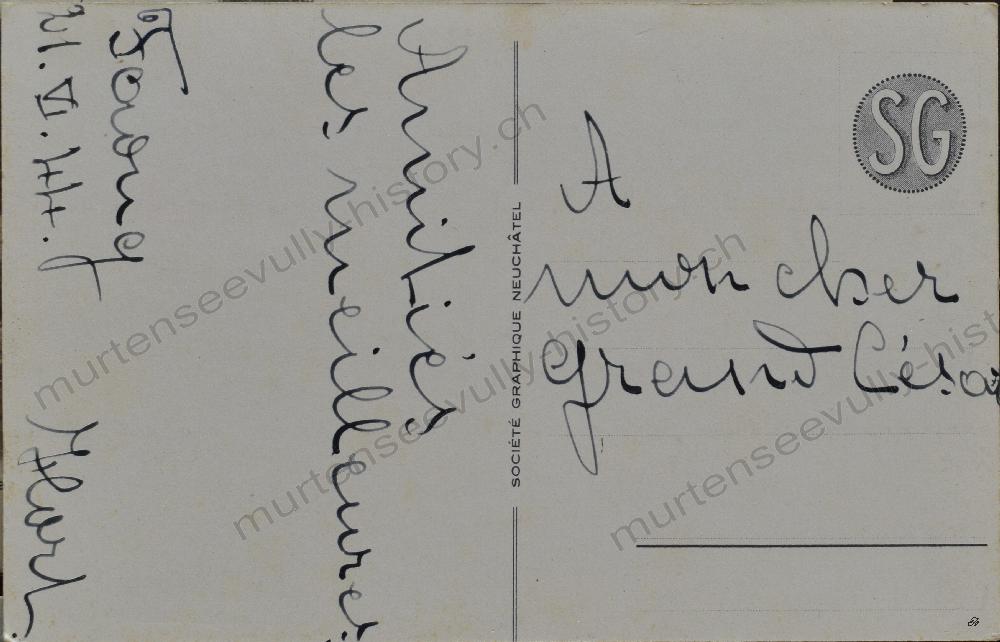 Amitiés
les meilleures.
Faoug
21.VI.44.
SOCIÉTÉ GRAPHIQUE NEUCHÂTEL
SG
A
mon cher
grand César
murtenseevully-history.ch
murtenseevully-history.ch
murtenseevully-history.ch
murtenseevully-history.ch